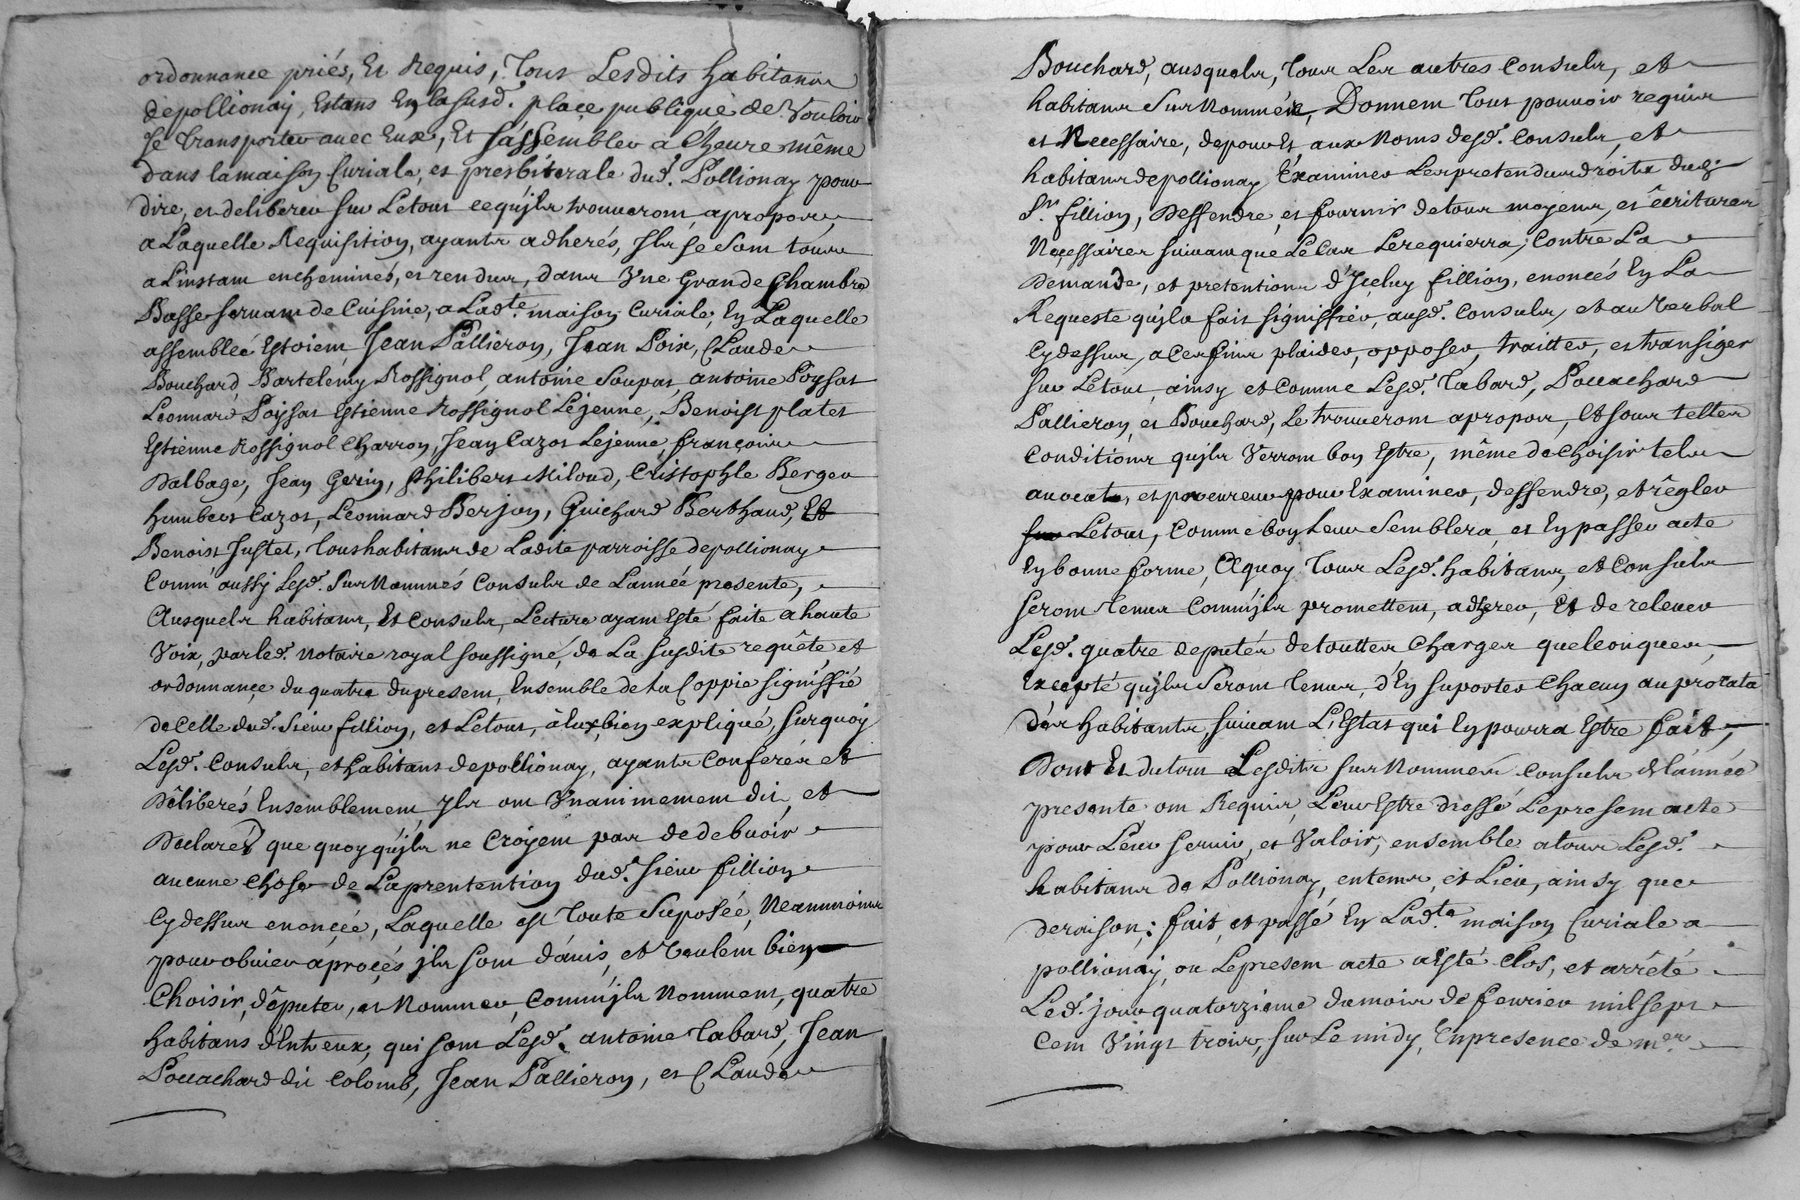 ordonnance priés, Et Requis, Tous Lesdits habitans
depollionay, Estans En lasusd.e place publique de Vouloir
se transporter avec Eux, Et sassembler a l'heure même
dans lamaison Curiale, et presbiterale dud.t Pollionay pour
dire, et deliberer sur Letout cequ'jls trouueront apropos,
a Laquelle Requisition, ayants adherés, jls se sont tous
a Linstant encheminés, et rendus, dans Vne Grande Chambre
Basse seruant de Cuisine, a Lad.te maison Curiale, En Laquelle
assemblée Estoient, Jean Pallieron, Jean Poix, Claude
Bouchard, Bartelemy Rossignol, antoine Soupat, antoine Poysat
Leonnard Poysat Estienne Rossignol Lejeune, Benoist platet
Estienne Rossignol Charron, Jean Cazot Lejeune, françois
Dalbage, Jean Gerin, Philibert Miloud, Cristophle Berger
humbert Cazot, Leonnard Berjon, Guichard Berthaud, Et
Benoist Justet, Tous habitans de Ladite parroisse depollionay
Comm' aussy Lesd. surNommés Consuls de Lannée presente,
Ausquels habitans, Et Consuls, Lecture ayant Esté faite a haute
Voix, par led. Notaire royal soussigné, de La susdite requête, et
ordonnance du quatre dupresent, Ensemble de la Coppie signiffié
de Celle dud. sieur fillion, et Letout, à Eux bien expliqué, surquoy
Lesd. Consuls, et habitans depollionay, ayants Conferés et
Déliberés Ensemblement, jls ont Vnanimement dit, et
Declarés que quoy qu'jls ne Croyent pas de debuoir
aucune Chose de Laprentention dud. sieur fillion
Cydessus enoncée, Laquelle est toute suposée, Neantmoins
pour obuier aprocés jls sont d'auis, et Veulent bien
Choisir, députer, et Nommer, Comm'jls Nomment, quatre
habitans d'Entr eux, qui sont Lesd. antoine Tabard, Jean
Pouachard dit Colomb, Jean Pallieron, et Claude
Bouchard, ausquels, Tous Les autres Consuls, et
habitans SurNommés, Donnent Tous pouuoir requis
et Necessaire, depour Et aux Noms desd. Consuls, et
habitans depollionay Examiner Lespretendus droits dud.
S.r fillion, Deffendre, et fournir detous moyens, et écritures
Necessaires suiuant que Lecas Lerequierra, Contre La
Demande, et pretentions d'Iceluy fillion, enoncés En La
Requeste qu'jl a fait signiffier, ausd. Consuls, et au Verbal
Cydessus, aCesfins plaider, opposer, traitter, et transiger
sur Letout, ainsy et Comme Lesd. Tabard, Pouachard
Pallieron, et Bouchard, Le trouueront apropos, Et sous telles
Conditions qu'jls Verront bon Estre, même de Choisir tels
auocats, et procureur pour Examiner, deffendre, et régler
Letout, Comme bon Leur semblera, et En passer acte
En bonne forme, Aquoy Tous Lesd. habitans, et Consuls
seront Tenus Comm'jls promettent, adherer, Et de releuer
Lesd. quatre deputés detouttes Charges quelconques,
Excepté qu'jls seront Tenus, d'En suporter Chacun au prorata
des habitants, suiuant L'Estat qui En pourra Estre fait,
Dont Et dutout Lesdits surNommés Consuls de L'année
presente ont Requis, Leur Estre dressé Lepresent acte
pour Leur seruir, et Valoir, ensemble a tous Lesd.
habitans de Pollionay, entems, et Lieu, ainsy que
deraison; fait, et passé En Lad.te maison Curiale a
pollionay, ou Lepresent acte a Esté Clos, et arrêté
Led. jour quatorzieme dumois de feurier mil sept
Cent Vingt trois, sur Le midy, Enpresence de m.es